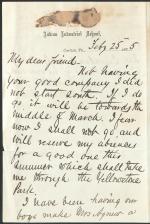 Indian Industrial School,
Carlisle, Pa., Feb'y 25 5
My dear friend.
Not having
your good company I did
not start south. If I do
go it will be towards the
middle of March. I fear
now I shall not go and
will reserve my absences
for a good one this
summer which shall take
me through the Yellowstone
Park.
I have been having our
boys make Mrs. Agnew a